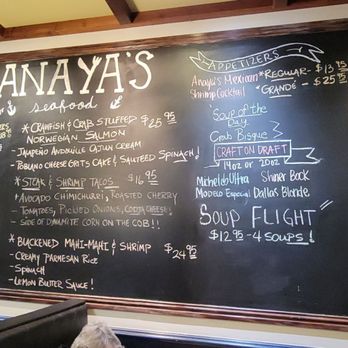 ANAYA'S
seafood
* CRAWFISH & CRAB STUFFED $25.95
NORWEGIAN SALMON
- JALAPEÑO ANDOUILLE CAJUN CREAM
- POBLANO CHEESE GRITS CAKE & SAUTEED SPINACH!
* STEAK & SHRIMP TACOS $16.95
- AVOCADO CHIMICHURRI, ROASTED CHERRY
- TOMATOES, PICKLED ONIONS, COTIJA CHEESE!
- SIDE OF DYNAMITE CORN ON THE COB!!
* BLACKENED MAHI-MAHI & SHRIMP $24.95
- CREAMY PARMESAN RICE
- SPINACH
- LEMON BUTTER SAUCE!
APPETIZERS
Anaya's Mexican *REGULAR- $13.95
Shrimp Cocktail *GRANDE - $25.95
Soup of the
Day
Crab Bisque
CRAFT ON DRAFT
14oz or 20oz
Michelob Ultra Shiner Bock
Modelo Especial Dallas Blonde
SOUP FLIGHT
$12.95 - 4 SOUPS!